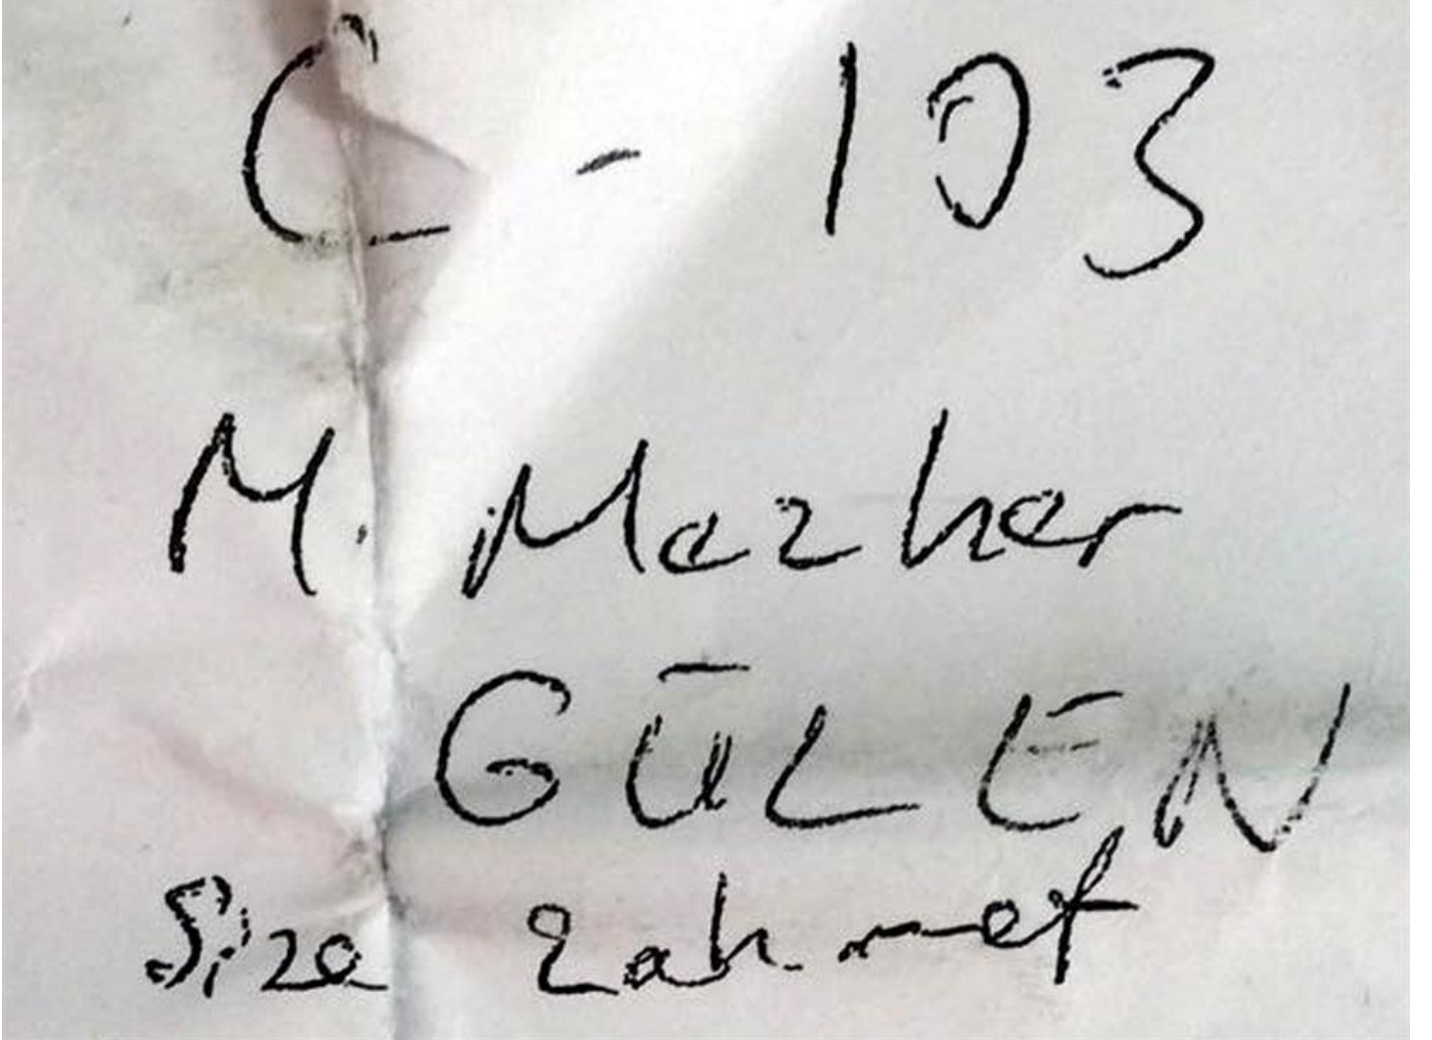 C - 103
M. Mazhar
GÜLEN
Size zahmet